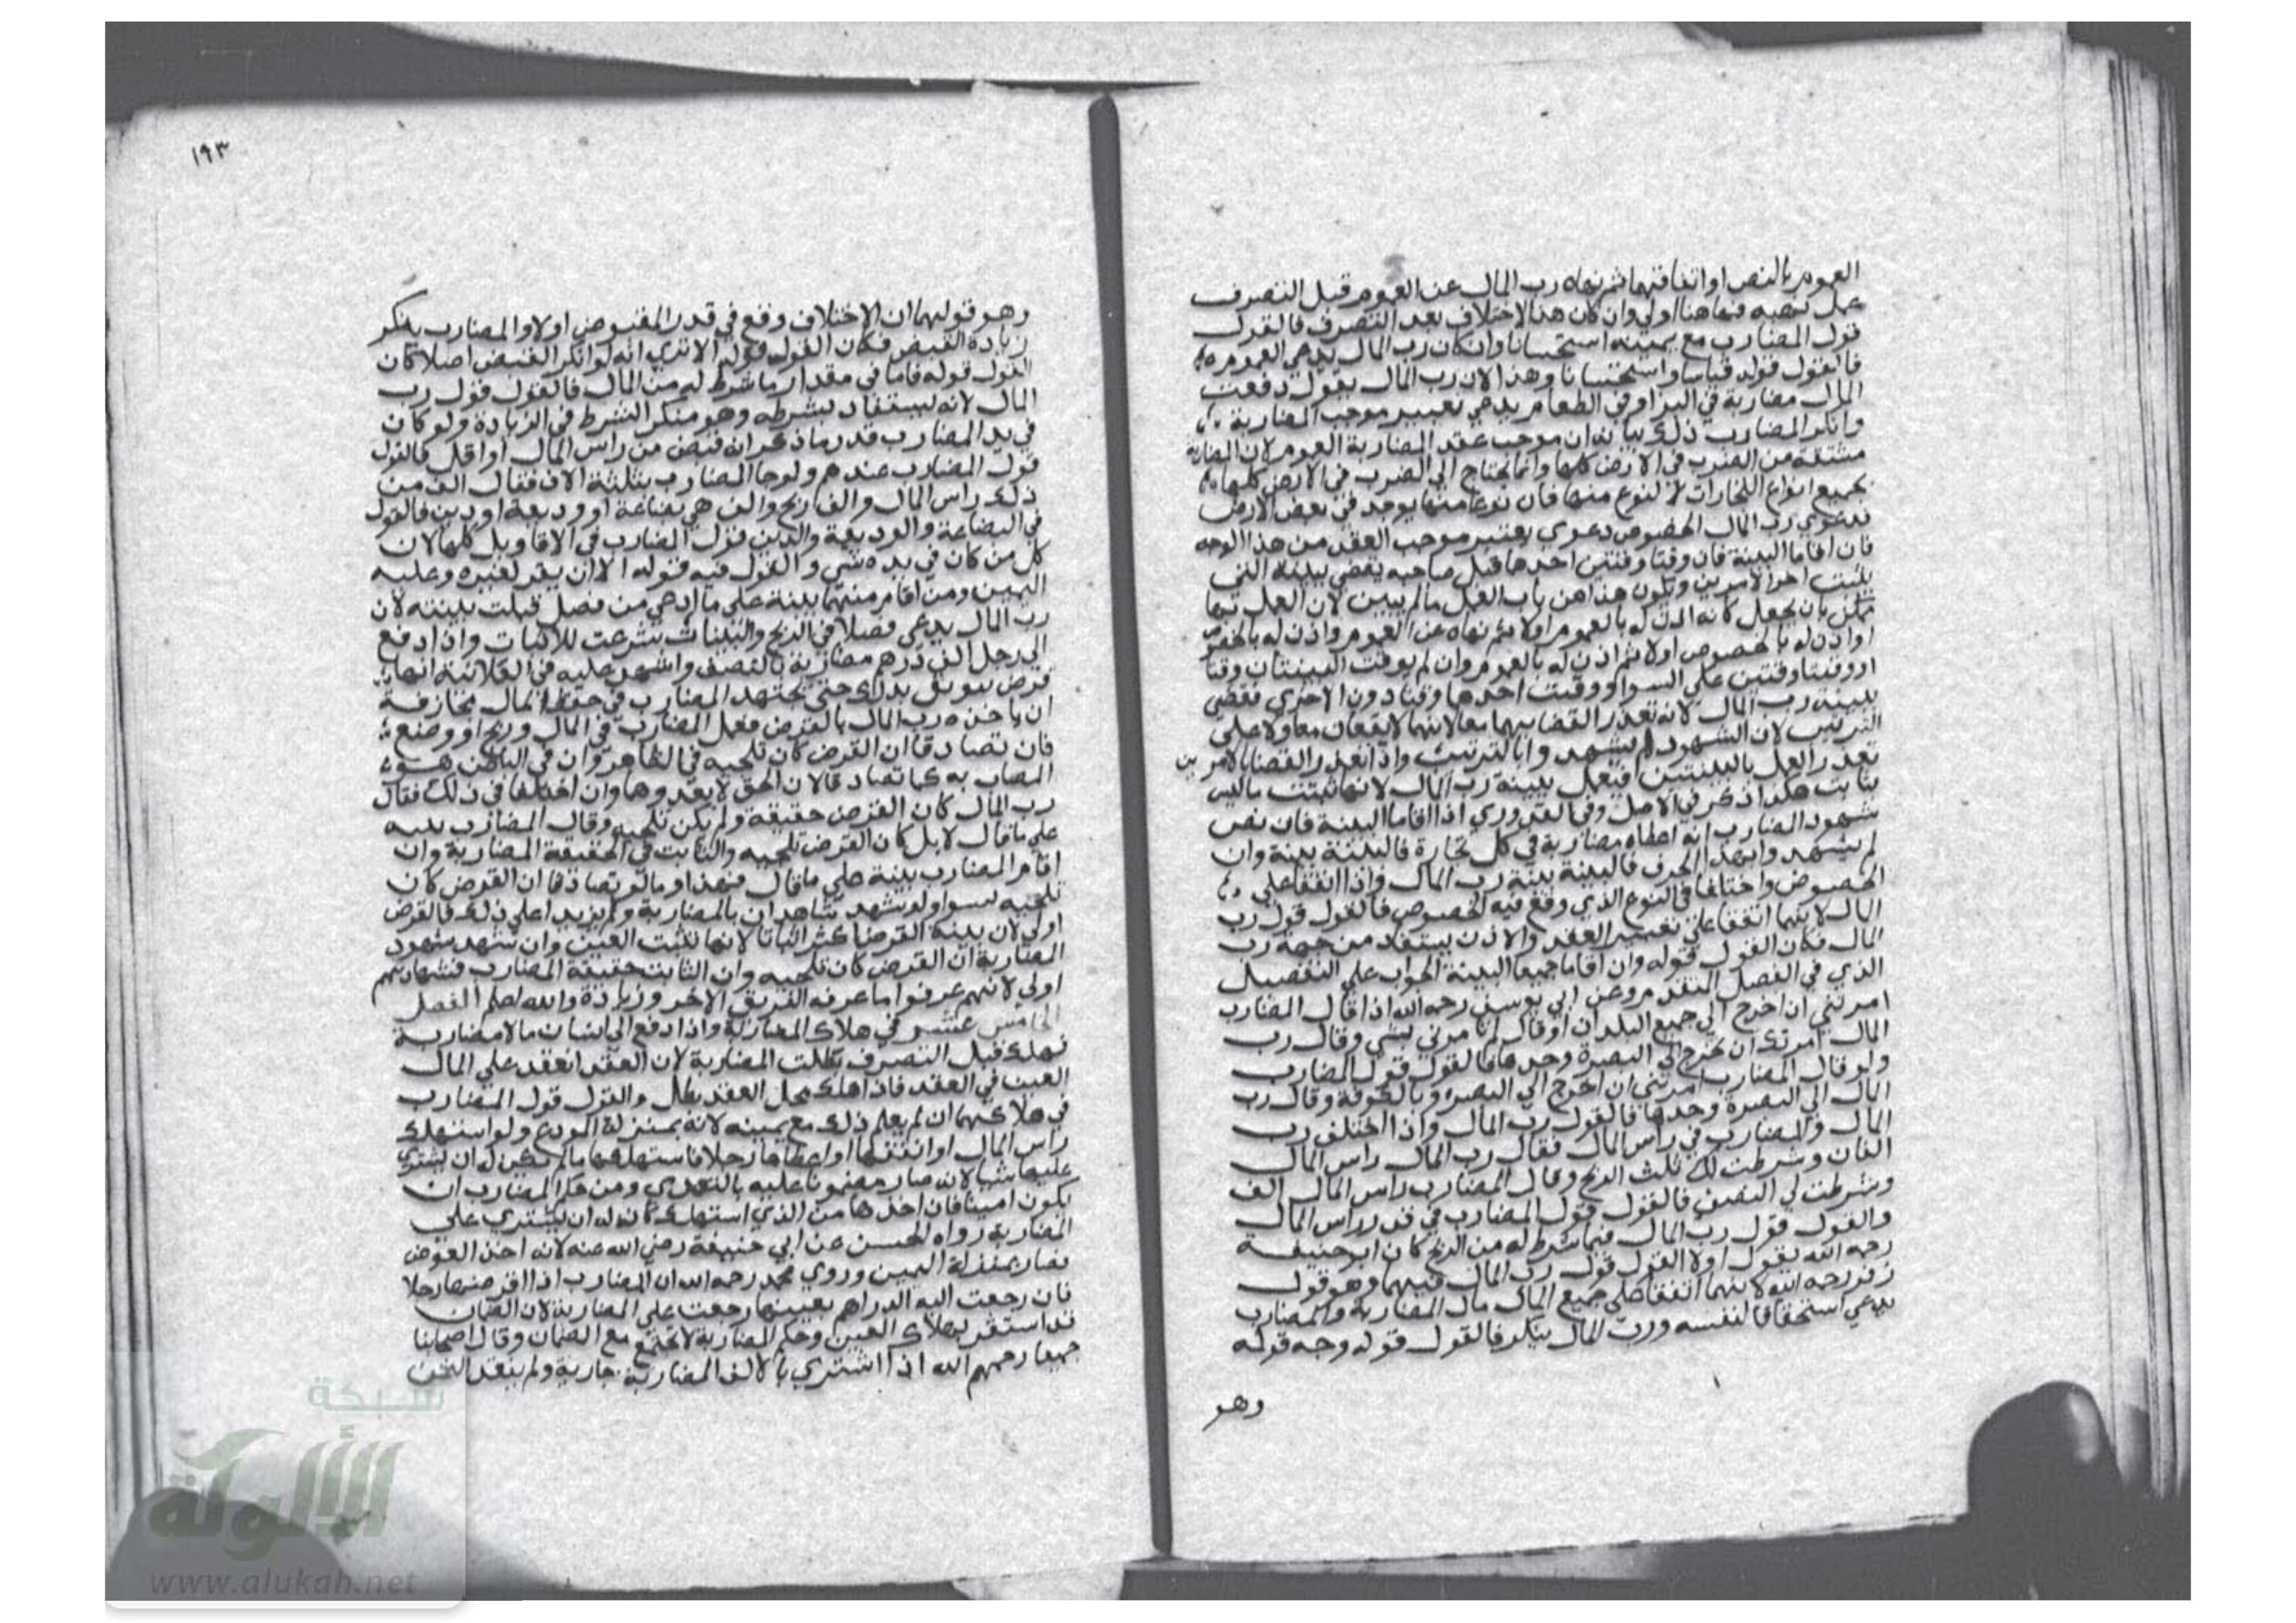 العموم بالنص او اتفاقهما ثم نهاه رب المال عن العموم قبل التصرف
عمل نهيه فيها هنا اولي وان كان هذا الاختلاف بعد التصرف فالقول
قول المضارب مع يمينه استحسانا وان كان رب المال يدعي العموم
فالقول قوله قياسا واستحسانا وهذا لان رب المال بقوله دفعت
المال مضاربة في البز او في الطعام يدعي تغيير موجب المضاربة
وانكر المضارب ذلك بيانه ان موجب عقد المضاربة العموم لان المضاربة
مشتقة من الضرب في الارض كلها وانما يحتاج الي الضرب في الارض كلها
بجميع انواع التجارات لا لنوع منها فان نوعا منها يوجد في بعض الارض
فدعوي رب المال الخصوص دعوي تغيير موجب العقد من هذا الوجه
فان اقاما البينة فان وقتا وقتين احدهما قبل صاحبه يقضي ببينة التي
يثبت اخر الامرين ويكون هذا من باب العمل مالم يبين لان العمل بهما
ممكن بان يجعل كانه اذن له بالعموم اولا ثم نهاه عن العموم واذن له بالخصوص
او اذن له بالخصوص اولا ثم اذن له بالعموم وان لم يوقت البينتان وقتا
او وقتا وقتين علي السوا او وقت احدهما وقتا دون الاخري فقضي
ببينة رب المال لانه تعذر القضا بهما معا لانهما لا يقعان معا ولا علي
الترتيب لان الشهود لم يشهدوا بالترتيب واذا تعذر القضا بالامرين
تعذر العمل بالبينتين فتعمل ببينة رب المال لانها تثبت ما ليس
بثابت هكذا ذكر في الاصل وفي القدوري اذا اقاما البينة فان نص
شهود المضارب انه اعطاه مضاربة في كل تجارة فالبينة بينة وان
لم يشهدوا بهذا الحرف فالبينة بينة رب المال واذا اتفقا علي
الخصوص واختلفا في النوع الذي وقع فيه الخصوص فالقول قول رب
المال لانهما اتفقا علي تغيير العقد والاذن يستفاد من جهة رب
المال فكان القول قوله وان اقاما جميعا البينة الجواب علي التفصيل
الذي في الفصل المتقدم وعن ابي يوسف رحمه الله اذا قال المضارب
امرتني ان اخرج الي جميع البلدان او قال لم تامرني بشي وقال رب
المال امرتك ان تخرج الي البصرة وحدها فالقول قول المضارب
ولو قال المضارب امرتني ان اخرج الي البصرة وبالكوفة وقال رب
المال الي البصرة وحدها فالقول رب المال واذا اختلف رب
المال والمضارب في راس المال فقال رب المال راس المال
الفان وشرطت لك ثلث الربح وقال المضارب راس المال الف
وشرطت لي النصف فالقول قول المضارب في قدر راس المال
والقول قول رب المال فيما شرط له من الربح كان ابو حنيفة
رحمه الله يقول اولا القول قول رب المال فيهما وهو قول
زفر رحمه الله لانهما اتفقا علي جميع المال مال المضاربة والمضارب
يدعي استحقاقا لنفسه ورب المال ينكر فالقول قوله وجه قوله
وهو
١٩٣
وهو قولهما ان الاختلاف وقع في قدر المقبوض اولا والمضارب ينكر
زيادة القبض فكان القول قوله الا تري انه لو انكر القبض اصلا كان
القول قوله فاما في مقدار ما شرط له من المال فالقول قول رب
المال لانه يستفاد بشرطه وهو منكر الشرط في الزيادة ولو كان
في يد المضارب قدر ما ذكر انه قبض من راس المال او اقل فالقول
قول المضارب عندهم ولو جا المضارب بثلثة الاف فقال الف من
ذلك راس المال والف ربح والف هي بضاعة او وديعة او دين فالقول
في البضاعة والوديعة والدين قول المضارب في الاقاويل كلها لان
كل من كان في يده شي والقول فيه قوله الا ان يقر لغيره وعليه
اليمين ومن اقام منهما بينة علي ما ادعي من فضل قبلت بينته لان
رب المال يدعي فضلا في الربح والبينات شرعت للاثبات واذا دفع
الي رجل الف درهم مضاربة بالنصف واشهد عليه في العلانية انها
قرض يتوثق بذلك حتي يجتهد المضارب في حفظ المال مخافة
ان ياخذه رب المال بالقرض فعمل المضارب في المال وربح او وضع
فان تصادقا ان القرض كان تلجيه في الظاهر وان في الباطن هو
المضاربه كما تصادقا لان الحق لا يعدوهما وان اختلفا في ذلك فقال
رب المال كان القرض حقيقة ولم يكن تلجيه وقال المضارب بينه
علي ما قال لا بل كان القرض تلجيه والثابت في الحقيقة المضاربة وان
اقام المضارب بينة علي ما قال فهذا وما لو تصادقا ان القرض كان
تلجيه سوا ولو شهد شاهدان بالمضاربة ولم يزيدا علي ذلك فالقرض
اولي لان بينة القرض اكثر اثباتا لانها تثبت العين وان شهد شهود
المضاربة ان القرض كان تلجيه وان الثابت حقيقة المضارب فشهادتهم
اولي لانهم عرفوا ما عرفه الفريق الاخر وزيادة والله اعلم الفصل
الخامس عشر في هلاك المضاربة واذا دفع الي انسان مالا مضاربة
فهلك قبل التصرف بطلت المضاربة لان العقد انعقد علي المال
العين في العقد فاذا هلك محل العقد بطل والقول قول المضارب
في هلاكهما ان لم يعلم ذلك مع يمينه لانه بمنزلة المودع ولو استهلك
راس المال او انفقها او اعطاها رجلا فاستهلكها مالم يكن له ان يشتري
عليها شيا لانه صار مضمونا عليه بالتعدي ومن حكم المضارب ان
يكون امينا فان اخذها من الذي استهلك كان له ان يشتري علي
المضاربة رواه الحسن عن ابي حنيفة رضي الله عنه لانه اخذ العوض
فصار بمنزلة اليمين وروي محمد رحمه الله ان المضارب اذا اقرضها رجلا
فان رجعت اليه الدراهم بعينها رجعت علي المضاربة لان الضمان
قد استقر بهلاك العين وحكم المضاربة لا تجتمع مع الضمان وقال اصحابنا
جميعا رحمهم الله اذا اشتري بالالف المضاربة جارية ولم ينقد الثمن
شبكة
الألوكة
www.alukah.net